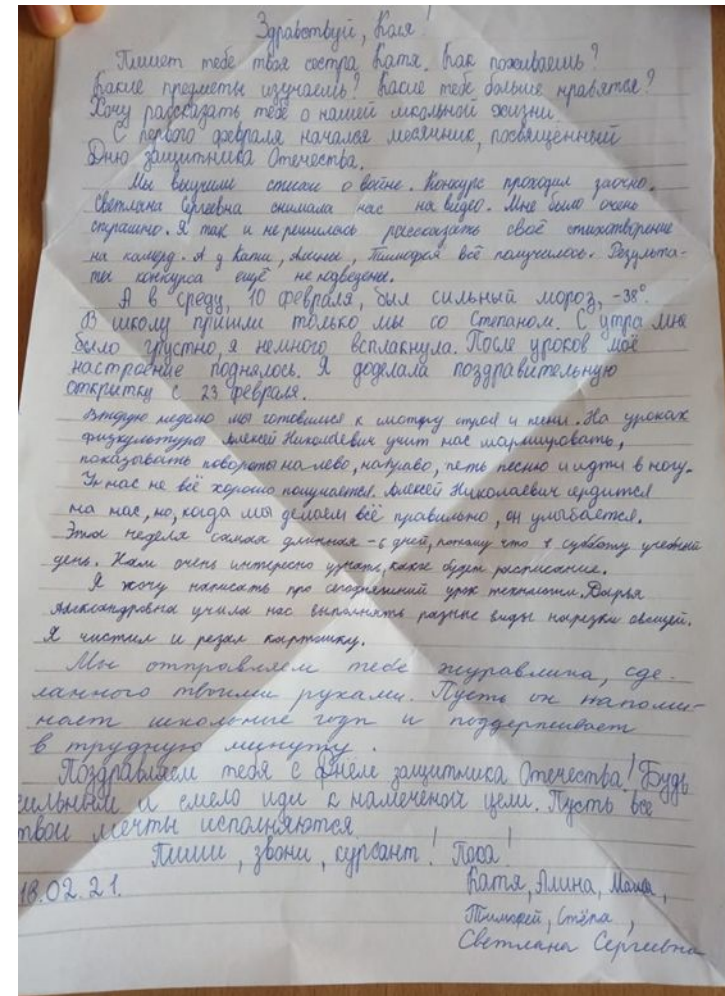 Здравствуй, Коля!
Пишет тебе твоя сестра Катя. Как поживаешь?
Какие предметы изучаешь? Какие тебе больше нравятся?
Хочу рассказать тебе о нашей школьной жизни.
С первого февраля начался месячник, посвященный
Дню защитника Отечества.
Мы выучили стихи о войне. Конкурс проходил заочно.
Светлана Сергеевна снимала нас на видео. Мне было очень
страшно. Я так и не решилась рассказать своё стихотворение
на камеру. А у Кати, Алины, Тимофея всё получилось. Результа-
ты конкурса ещё не подведены.
А в среду, 10 февраля, был сильный мороз, -38°.
В школу пришли только мы со Степаном. С утра мне
было грустно, я немного всплакнула. После уроков моё
настроение поднялось. Я доделала поздравительную
открытку с 23 февраля.
Вторую неделю мы готовимся к смотру строя и песни. На уроках
физкультуры Алексей Николаевич учит нас маршировать,
показывать повороты на лево, направо, петь песню и идти в ногу.
У нас не всё хорошо получается. Алексей Николаевич сердится
на нас, но, когда мы делаем всё правильно, он улыбается.
Эта неделя самая длинная - 6 дней, потому что в субботу учебный
день. Нам очень интересно узнать, какое будет расписание.
Я хочу написать про сегодняшний урок технологии. Дарья
Александровна учила нас выполнять разные виды нарезки овощей.
Я чистил и резал картошку.
Мы отправляем тебе журавлика, сде-
ланного твоими руками. Пусть он напоми-
нает школьные годы и поддерживает
в трудную минуту.
Поздравляем тебя с Днём защитника Отечества! Будь
сильным и смело иди к намеченой цели. Пусть все
твои мечты исполняются
Пиши, звони, курсант! Пока!
18.02.21. Катя, Алина, Маша,
Тимофей, Стёпа,
Светлана Сергеевна